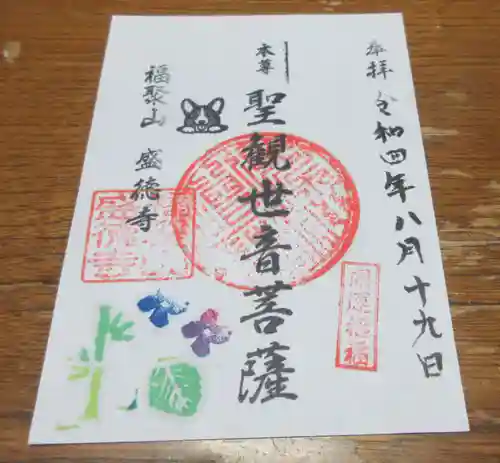 奉拝
令和四年八月十九日
本尊
聖観世音菩薩
福聚山
盛徳寺